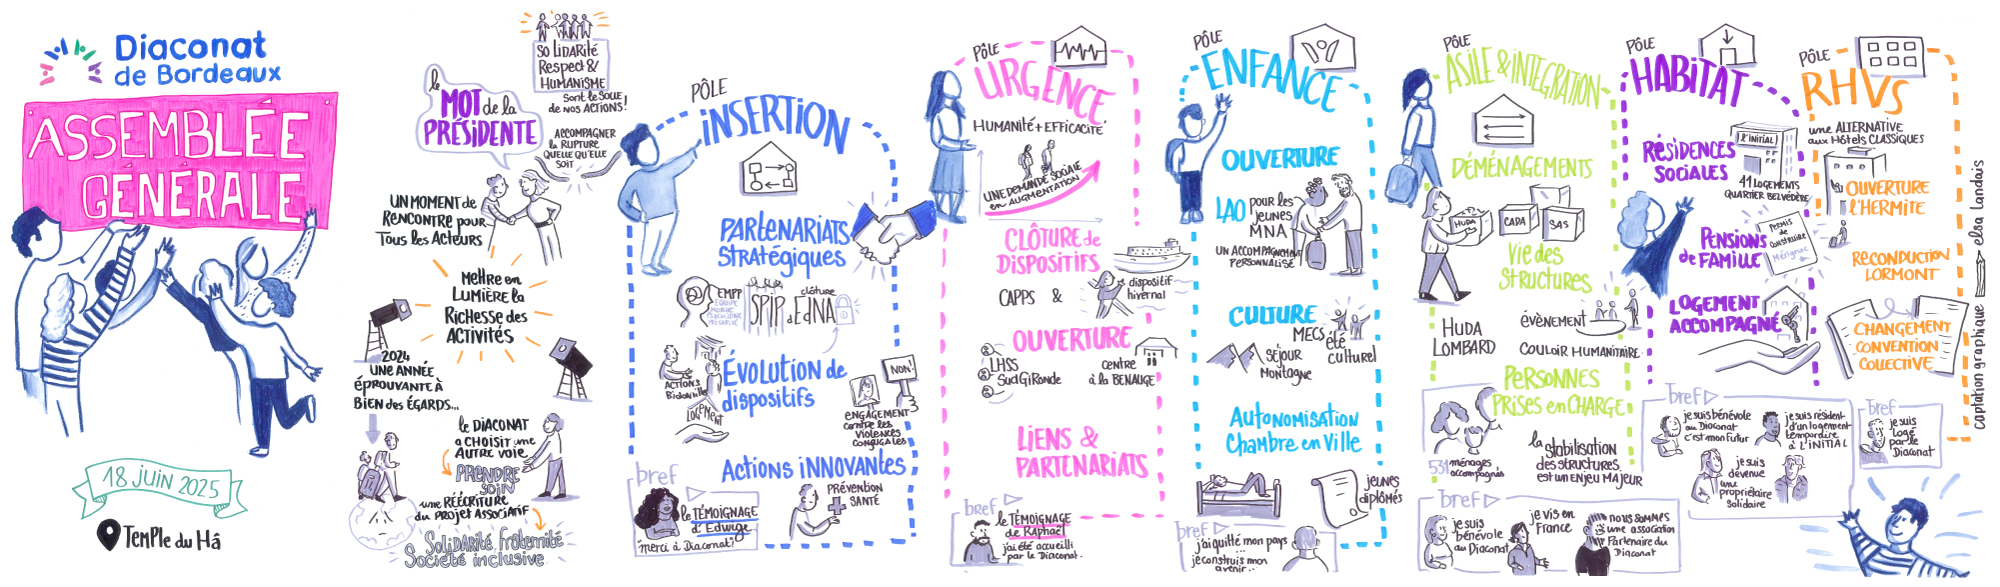 Diaconat
de Bordeaux
ASSEMBLÉE
GÉNÉRALE
18 JUIN 2025
TEMPLE du HÂ
le
MOT de la
PRÉSIDENTE
SOLIDARITÉ
Respect &
HUMANISME
sont le SOCLE
de nos ACTIONS !
ACCOMPAGNER
la RUPTURE
QUELLE QU'ELLE
SOIT
UN MOMENT de
RENCONTRE pour
Tous les Acteurs
Mettre en
LUMIÈRE la
Richesse des
ACTIVITÉS
2024
UNE ANNÉE
ÉPROUVANTE À
BIEN des ÉGARDS...
le DIACONAT
a CHOISIT une
AUTRE VOIE
PRENDRE
SOIN
une RÉÉCRITURE
du PROJET ASSOCIATIF
Solidarité, fraternité
Société inclusive
PÔLE
INSERTION
PARTENARIATS
Stratégiques
EMPP
ÉQUIPE
MOBILE
PSYCHIATRIE
PRÉCARITÉ
SPIP
clôture
d'EdNA
ACTIONS
Bidonville
LOGEMENT
ÉVOLUTION de
dispositifs
NON!
ENGAGEMENT
contre les
VIOLENCES
CONJUGALES
Actions iNNOVANTES
PRÉVENTION
SANTÉ
bref
le TÉMOIGNAGE
d'Edwige
"merci à Diaconat"
PÔLE
URGENCE
HUMANITÉ + EFFICACITÉ
UNE DEMANDE SOCIALE
en AUGMENTATION
CLÔTURE de
DISPOSITIFS
CAPPS &
dispositif
hivernal
OUVERTURE
LHSS
Sud Gironde
centre
à la BENAUGE
LIENS &
PARTENARIATS
bref
le TÉMOIGNAGE
de RAPHAËL
j'ai été accueilli
par le Diaconat.
PÔLE
ENFANCE
OUVERTURE
LAO pour les
jeunes
MNA
UN ACCOMPAGNEMENT
PERSONNALISÉ
CULTURE
MECS
été
culturel
SÉJOUR
MONTAGNE
Autonomisation
Chambre en Ville
jeunes
diplômés
bref
j'ai quitté mon pays
je construis mon
avenir...
PÔLE
ASILE & INTÉGRATION
DÉMÉNAGEMENTS
HUDA
CADA
SAS
Vie des
STRUCTURES
HUDA
LOMBARD
ÉVÈNEMENT
COULOIR HUMANITAIRE
PERSONNES
PRISES en CHARGE
531 ménages
accompagnés
la
stabilisation
des structures
est un ENJEU MAJEUR
bref
je suis
bénévole
au Diaconat
je vis en
France
nous sommes
une association
Partenaire du
Diaconat
PÔLE
HABITAT
RÉSIDENCES
SOCIALES
L'INITIAL
41 LOGEMENTS
QUARTIER BELVÉDÈRE
PENSIONS
de FAMILLE
PERMIS
de
construire
Mérignac
LOGEMENT
ACCOMPAGNÉ
bref
je suis bénévole
au Diaconat
c'est mon futur
je suis résident
d'un logement
temporaire
à L'INITIAL
je suis
devenue
une
propriétaire
solidaire
PÔLE
RHVS
une ALTERNATIVE
aux Hôtels CLASSIQUES
OUVERTURE
L'HERMITE
RECONDUCTION
LORMONT
CHANGEMENT
CONVENTION
COLLECTIVE
bref
je suis
Logé
par le
Diaconat
captation graphique elsa Landais